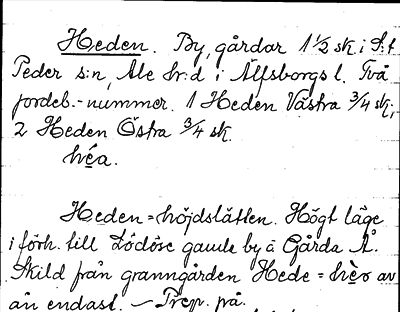 Heden. By, gårdar 1 1/2 sk i S:t
Peder s:n, Ale hr:d i Älfsborgs l. Två
jordeb.-nummer. 1 Heden Västra 3/4 sk;
2 Heden Östra 3/4 sk.
héa.
Heden = höjdslätten. Högt läge
i förh. till Lödöse gamle by å Gårda Å.
Skild från granngården Hede = av
ån endast. - Prep. på.